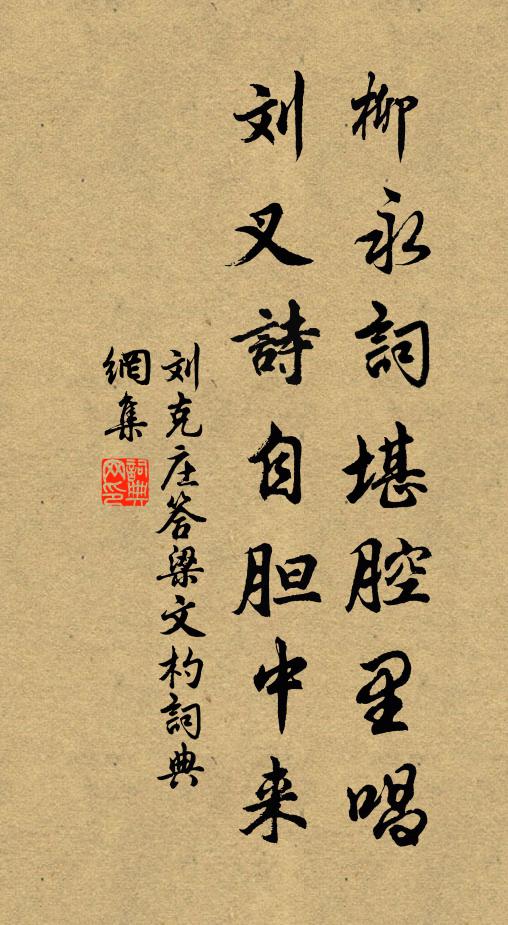 柳永詞堪腔里唱
刘叉詩自胆中来
刘克庄答梁文杓詞典
網集
詞典
网印